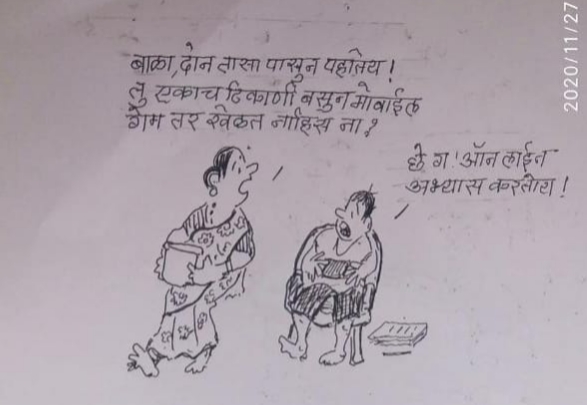 बाळा, दोन तासा पासुन पहातेय!
तु एकाच ठिकाणी बसुन मोबाईल
गेम तर खेळत नाहिस ना?
छे ग! ऑन लाईन
अभ्यास करतोय!
2020/11/27